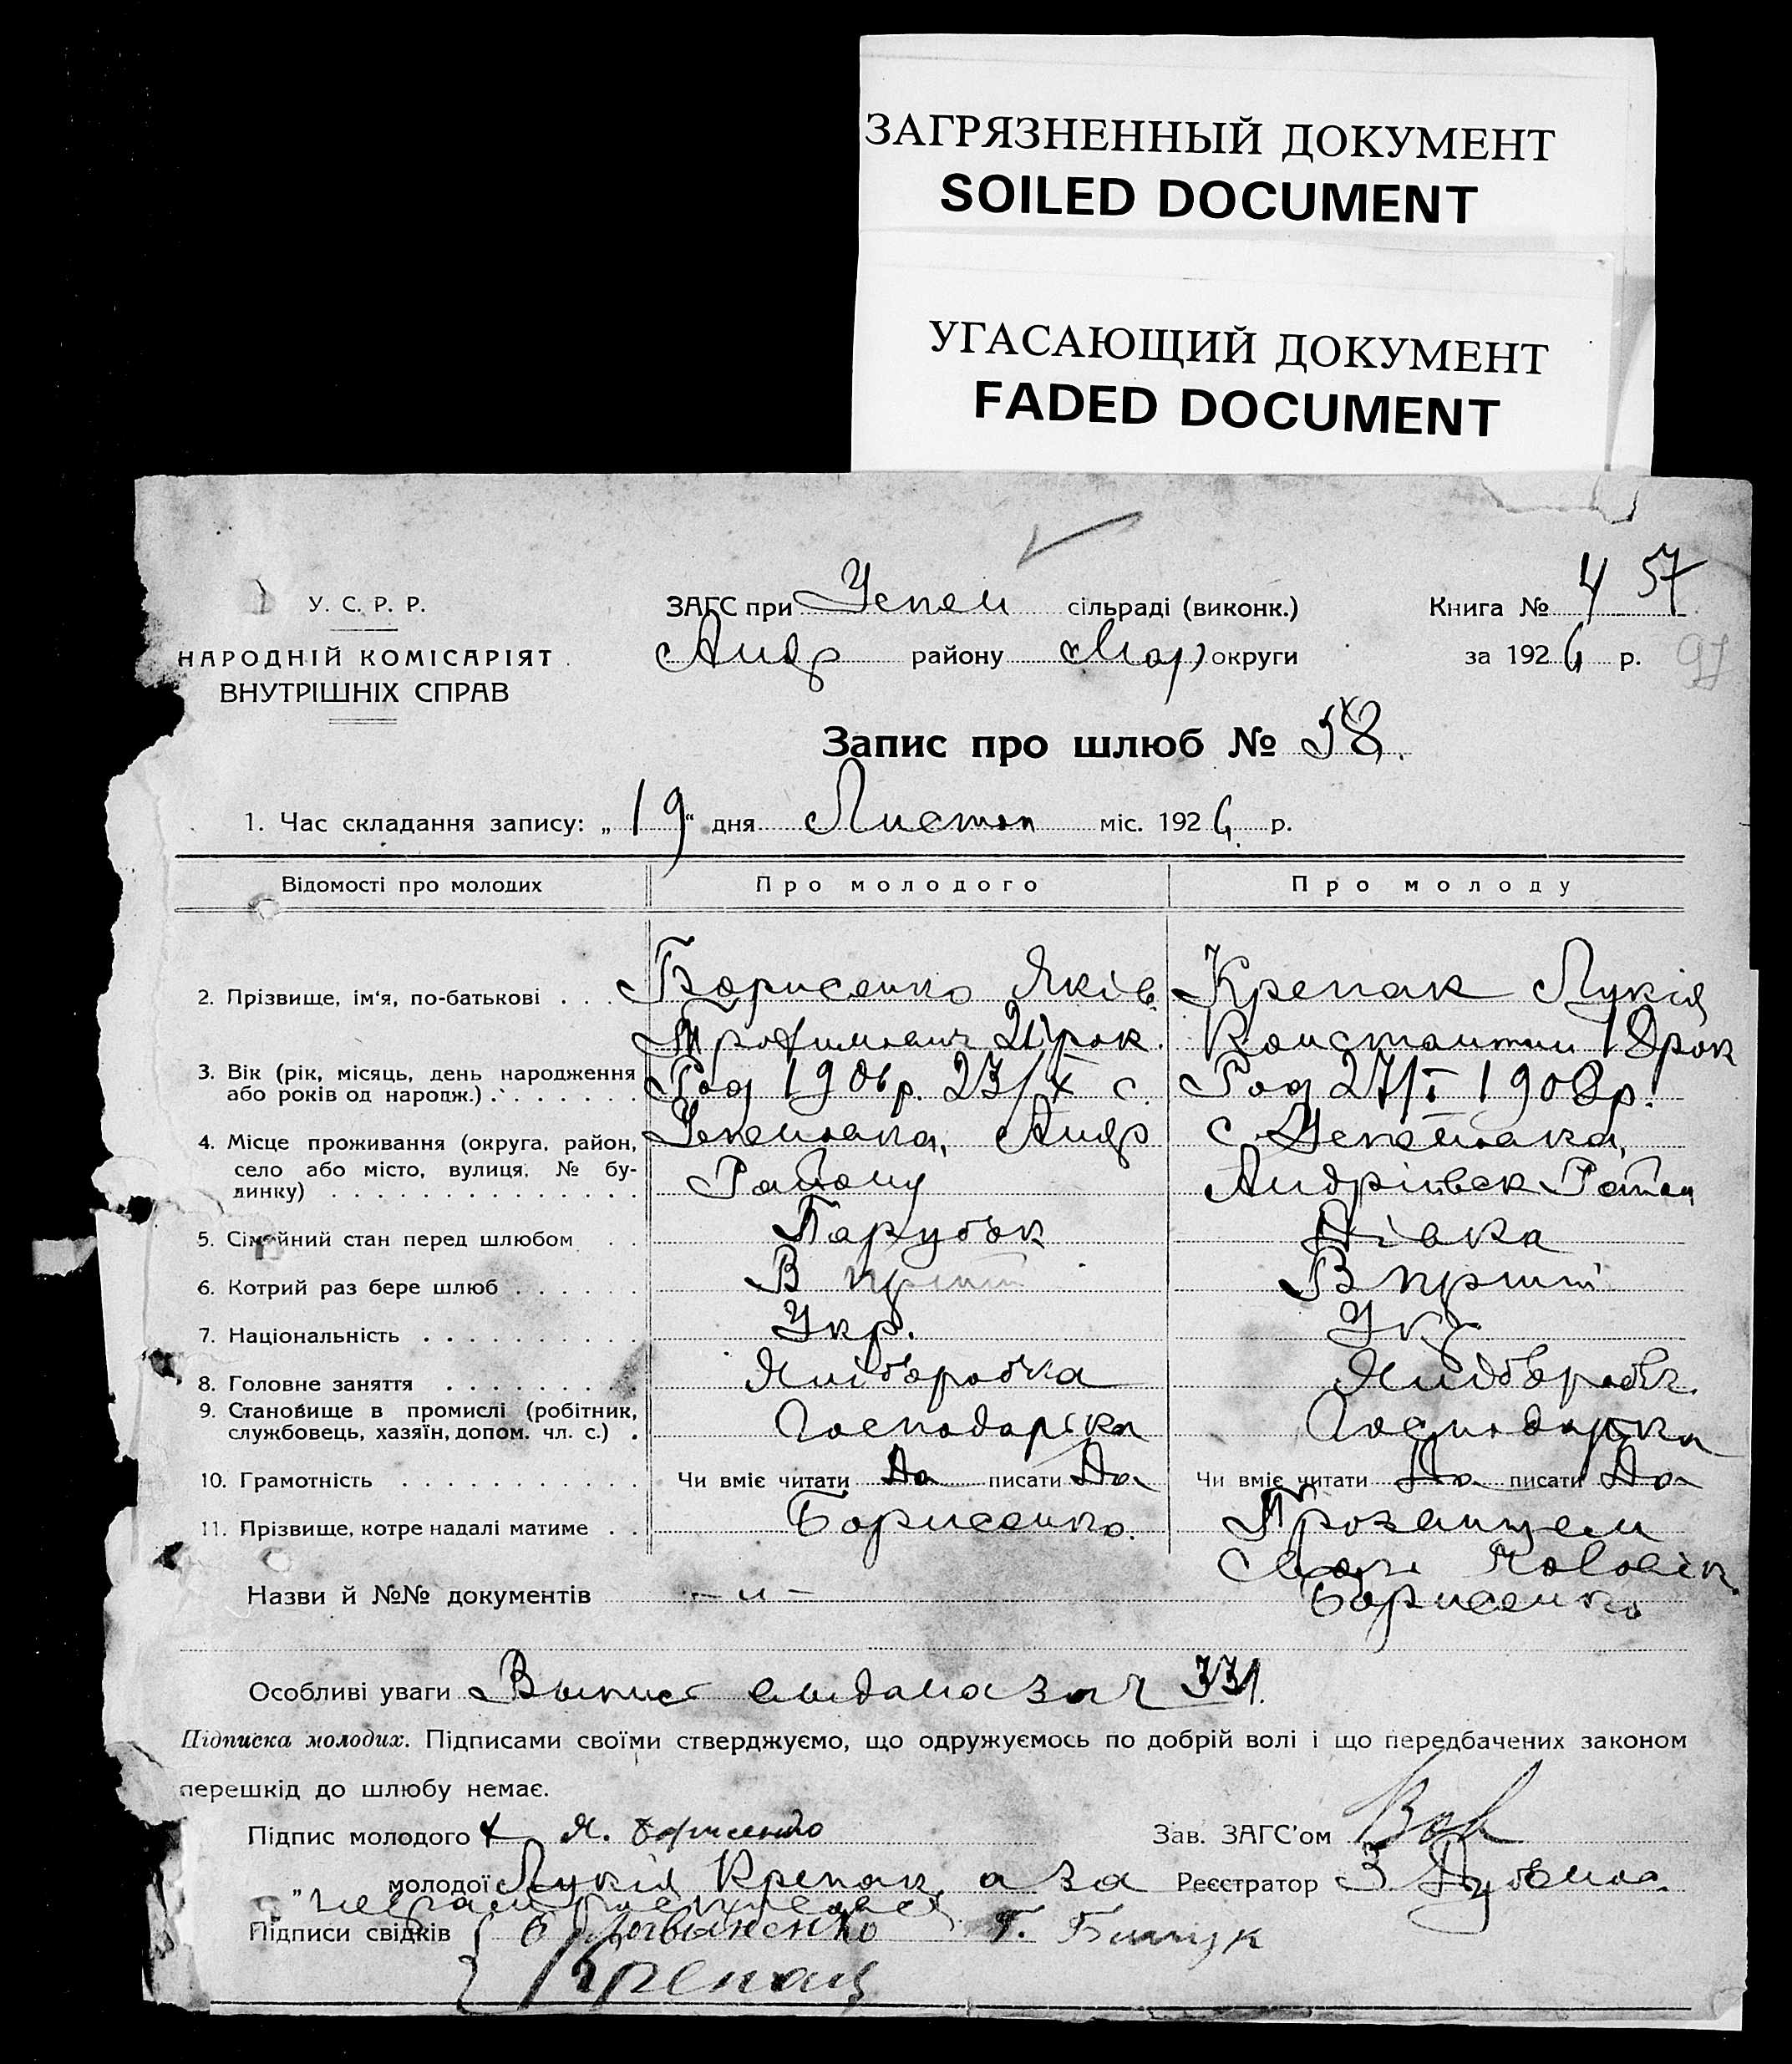 ЗАГРЯЗНЕННЫЙ ДОКУМЕНТ
SOILED DOCUMENT
УГАСАЮЩИЙ ДОКУМЕНТ
FADED DOCUMENT
4 57
У. С. Р. Р. ЗАГС при Успен сільраді (виконк.) Книга №
НАРОДНІЙ КОМІСАРІЯТ Андр району Мар округи за 1926 р. 97
ВНУТРІШНІХ СПРАВ
Запис про шлюб № 58.
1. Час складання запису: „19“ дня Листоп міс. 1926 р.
Відомості про молодих Про молодого Про молоду
2. Прізвище, ім'я, по-батькові Борисенко Яків Крепак Лукія
Трофимович 20 рок. Константин 18 рок
3. Вік (рік, місяць, день народження або років од народж.) Род 1906р. 23/X с. Род 27/I 1908р.
4. Місце проживання (округа, район, Успеновка, Андр с. Успеновка,
село або місто, вулиця, № бу-
динку) Району Андріівск Район
5. Сімейний стан перед шлюбом Парубок Дівка
6. Котрий раз бере шлюб В перший В перший
7. Національність Укр. Укр
8. Головне заняття Хлібороб
9. Становище в промислі (робітник,
службовець, хазяїн, допом. чл. с.) Господарка Господарка
10. Грамотність Чи вміє читати Да писати Да Чи вміє читати Да писати Да
11. Прізвище, котре надалі матиме Борисенко.
Назви й №№ документів — „ — Борисенко
Особливі уваги Выпись выдана за № 331.
Підписка молодих. Підписами своїми стверджуємо, що одружуємось по добрій волі і що передбачених законом
перешкід до шлюбу немає.
Підпис молодого Я. Борисенко Зав. ЗАГС'ом
„ молодої Лукія Крепак а за Реєстратор
Підписи свідків